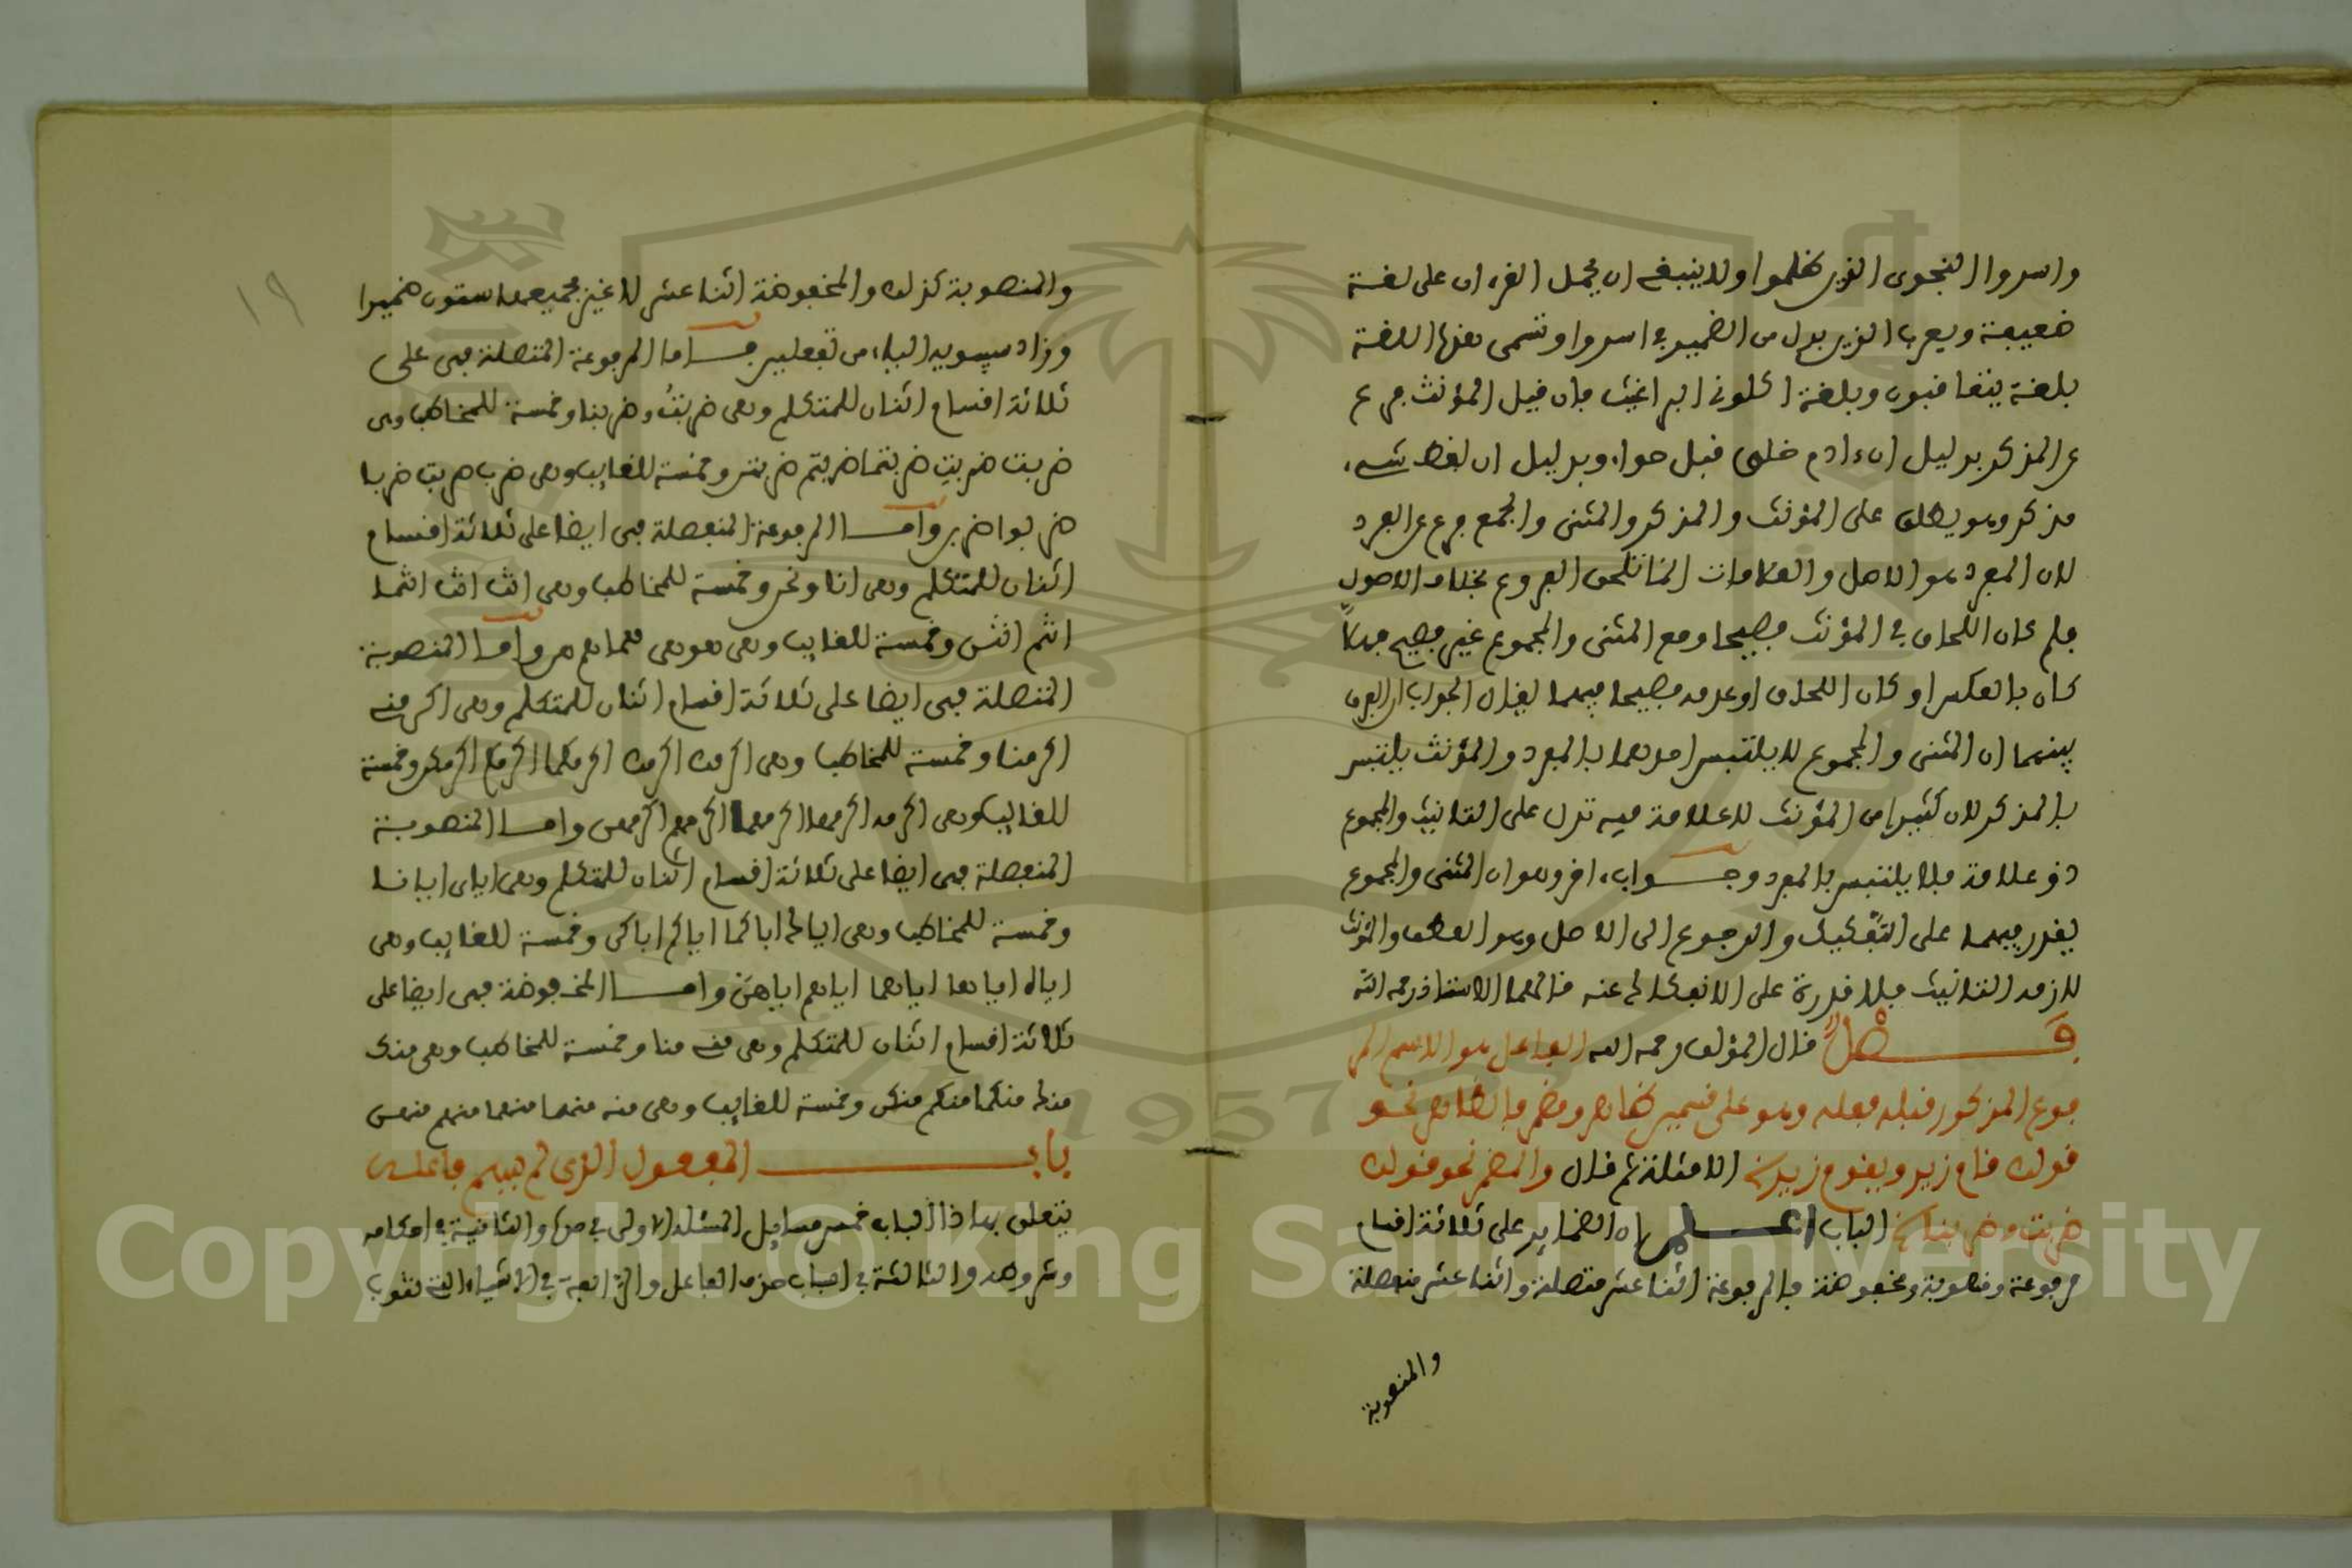 واسروا النجوى الذين ظلموا ولا ينبغي ان يحمل القرءان على لغة
ضعيفة ويعرب الذين بدل من الضمير في اسروا وتسمى هذه اللغة
بلغة يتعاقبون وبلغة اكلوني البراغيث فان قيل المؤنث فرع
عن المذكر بدليل ان ءادم خلق قبل حواء وبدليل ان لفظ شيء
مذكر وهو يطلق على المؤنث والمذكر والمثنى والجمع فرع عن المفرد
لان المفرد هو الاصل والعلامات انما تلحق الفروع بخلاف الاصول
فلم كان اللحاق في المؤنث فصيحا ومع المثنى والمجموع غير فصيح فهلا
كان بالعكس او كان اللحاق او عدمه فصيحا فيهما يقال الجواب ان الفرق
بينهما ان المثنى والمجموع لا يلتبس احدهما بالمفرد والمؤنث يلتبس
بالمذكر لان كثيرا من المؤنث لا علامة فيه تدل على التانيث والمجموع
ذو علامة فلا يلتبس بالمفرد وجواب ءاخر وهو ان المثنى والمجموع
يقدر فيهما على التفكيك والرجوع الى الاصل وهو العطف والمؤنث
لازمه التانيث فلا قدرة على الانفكاك عنه قالهما الاستاذ رحمه الله
فصل قال المؤلف رحمه الله الفاعل هو الاسم المر
فوع المذكور قبله فعله وهو على قسمين ظاهر ومضمر فالظاهر نحو
قولك قام زيد ويقوم زيد الامثلة ثم قال والمضمر نحو قولك
ضربت وضربنا الباب اعلم ان الضماير على ثلاثة اقسام
مرفوعة ومنصوبة ومخفوضة فالمرفوعة اثنا عشر متصلة واثنا عشر منفصلة
والمنصوبة
١٩
والمنصوبة كذلك والمخفوضة اثنا عشر لا غير فجميعها ستون ضميرا
وزاد سيبويه الياء من تفعلين فاما المرفوعة المتصلة فهي على
ثلاثة اقسام اثنان للمتكلم وهي ضربتُ وضربنا وخمسة للمخاطب وهي
ضربت ضربتِ ضربتما ضربتم ضربتن وخمسة للغايب وهي ضرب ضربت ضربا
ضربوا ضربن واما المرفوعة المنفصلة فهي ايضا على ثلاثة اقسام
اثنان للمتكلم وهي انا ونحن وخمسة للمخاطب وهي انت انت انتما
انتم انتن وخمسة للغايب وهي هو هي هما هم هن واما المنصوبة
المتصلة فهي ايضا على ثلاثة اقسام اثنان للمتكلم وهي اكرمني
اكرمنا وخمسة للمخاطب وهي اكرمك اكرمك اكرمكما اكرمكم اكرمكن وخمسة
للغايب وهي اكرمه اكرمها اكرمهما اكرمهم اكرمهن واما المنصوبة
المنفصلة فهي ايضا على ثلاثة اقسام اثنان للمتكلم وهي اياي ايانا
وخمسة للمخاطب وهي اياك اياكما اياكم اياكن وخمسة للغايب وهي
اياه اياها اياهما اياهم اياهن واما المخفوضة فهي ايضا على
ثلاثة اقسام اثنان للمتكلم وهي مني منا وخمسة للمخاطب وهي منك
منك منكما منكم منكن وخمسة للغايب وهي منه منها منهما منهم منهن
باب المفعول الذي لم يسم فاعله
يتعلق بهاذا الباب خمس مسايل المسئلة الاولى في حده والثانية في احكامه
وشروطه والثالثة في اسباب حذف الفاعل والرابعة في الاشياء التي تنوب
Copyright © King Saud University
1957